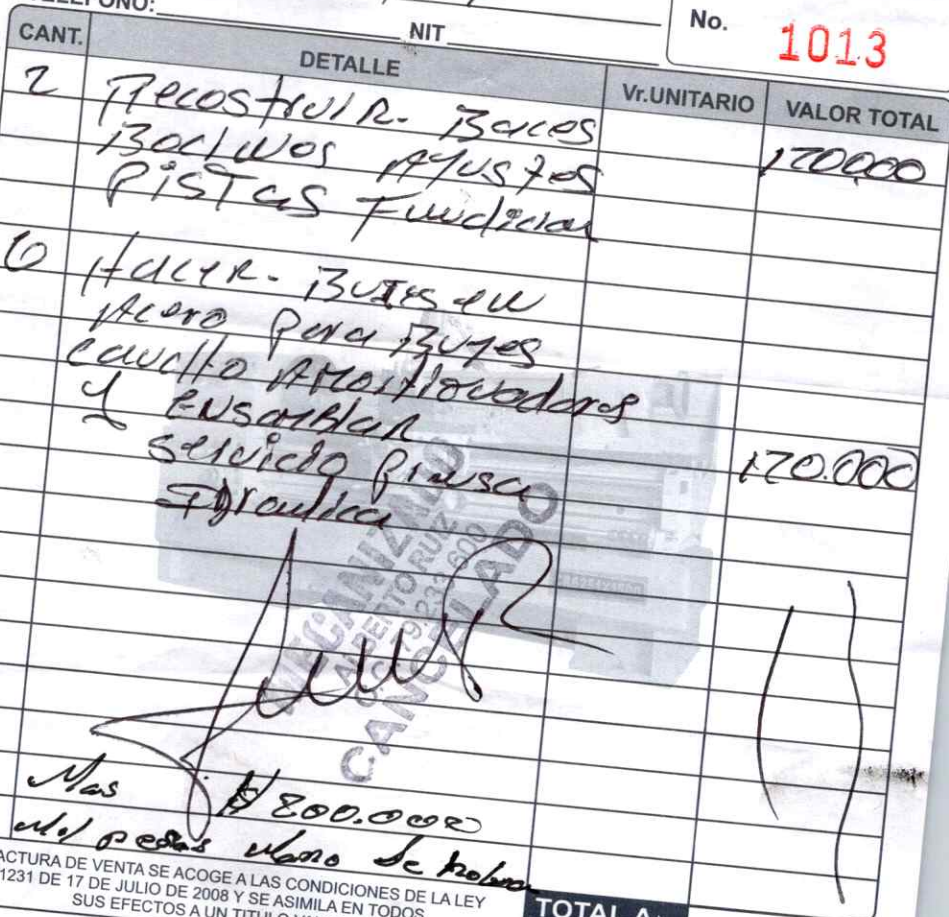 TELEFONO:
NIT
No. 1013
CANT. DETALLE Vr.UNITARIO VALOR TOTAL
2 Recostruir. Baces
Bocinos Ajustes 170000
Pistas Fundicion
6 Hacer. Bujes en
Acero para Bujes
caucho Amortiguadores
y ensamblar
servicio prensa 170.000
Idraulica
MECANIZADO
ALBERTO RUIZ
CANCELADO
Mas $ 200.000
Mil pesos Mano de
ACTURA DE VENTA SE ACOGE A LAS CONDICIONES DE LA LEY
1231 DE 17 DE JULIO DE 2008 Y SE ASIMILA EN TODOS
SUS EFECTOS A UN TITULO
TOTAL